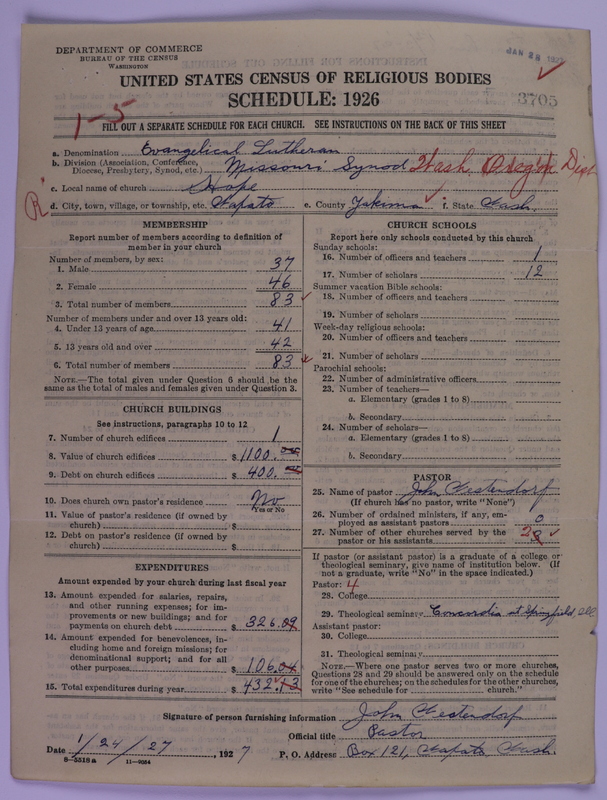 DEPARTMENT OF COMMERCE
BUREAU OF THE CENSUS
WASHINGTON
JAN 28 1927
UNITED STATES CENSUS OF RELIGIOUS BODIES
SCHEDULE: 1926
3705
1-5
FILL OUT A SEPARATE SCHEDULE FOR EACH CHURCH. SEE INSTRUCTIONS ON THE BACK OF THIS SHEET
a. Denomination Evangelical Lutheran
b. Division (Association, Conference, Diocese, Presbytery, Synod, etc.) Missouri Synod Wash & Oregon Dist
c. Local name of church Hope
R
d. City, town, village, or township, etc. Wapato e. County Yakima f. State Wash.
MEMBERSHIP
Report number of members according to definition of
member in your church
Number of members, by sex:
1. Male 37
2. Female 46
3. Total number of members 83
Number of members under and over 13 years old:
4. Under 13 years of age 41
5. 13 years old and over 42
6. Total number of members 83
NOTE.—The total given under Question 6 should be the
same as the total of males and females given under Question 3.
CHURCH BUILDINGS
See instructions, paragraphs 10 to 12
7. Number of church edifices 1
8. Value of church edifices $1100.
9. Debt on church edifices $400.
10. Does church own pastor's residence No
Yes or No
11. Value of pastor's residence (if owned by
church) $
12. Debt on pastor's residence (if owned by
church) $
EXPENDITURES
Amount expended by your church during last fiscal year
13. Amount expended for salaries, repairs,
and other running expenses; for im-
provements or new buildings; and for
payments on church debt $326.09
14. Amount expended for benevolences, in-
cluding home and foreign missions; for
denominational support; and for all
other purposes $106.04
15. Total expenditures during year $432.13
CHURCH SCHOOLS
Report here only schools conducted by this church
Sunday schools:
16. Number of officers and teachers 1
17. Number of scholars 12
Summer vacation Bible schools:
18. Number of officers and teachers
19. Number of scholars
Week-day religious schools:
20. Number of officers and teachers
21. Number of scholars
Parochial schools:
22. Number of administrative officers
23. Number of teachers—
a. Elementary (grades 1 to 8)
b. Secondary
24. Number of scholars—
a. Elementary (grades 1 to 8)
b. Secondary
PASTOR
25. Name of pastor John Westendorf
(If church has no pastor, write "None")
26. Number of ordained ministers, if any, em-
ployed as assistant pastors 0
27. Number of other churches served by the
pastor or his assistants 2
If pastor (or assistant pastor) is a graduate of a college or
theological seminary, give name of institution below. (If
not a graduate, write "No" in the space indicated.)
Pastor: 4
28. College
29. Theological seminary Concordia at Springfield, Ill
Assistant pastor:
30. College
31. Theological seminary
NOTE.—Where one pastor serves two or more churches,
Questions 28 and 29 should be answered only on the schedule
for one of the churches; on the schedules for the other churches,
write "See schedule for church."
Signature of person furnishing information John Westendorf
Official title Pastor
Date 1/24/27, 1927 P. O. Address Box 121, Wapato Wash.
8—5518a 11—9054